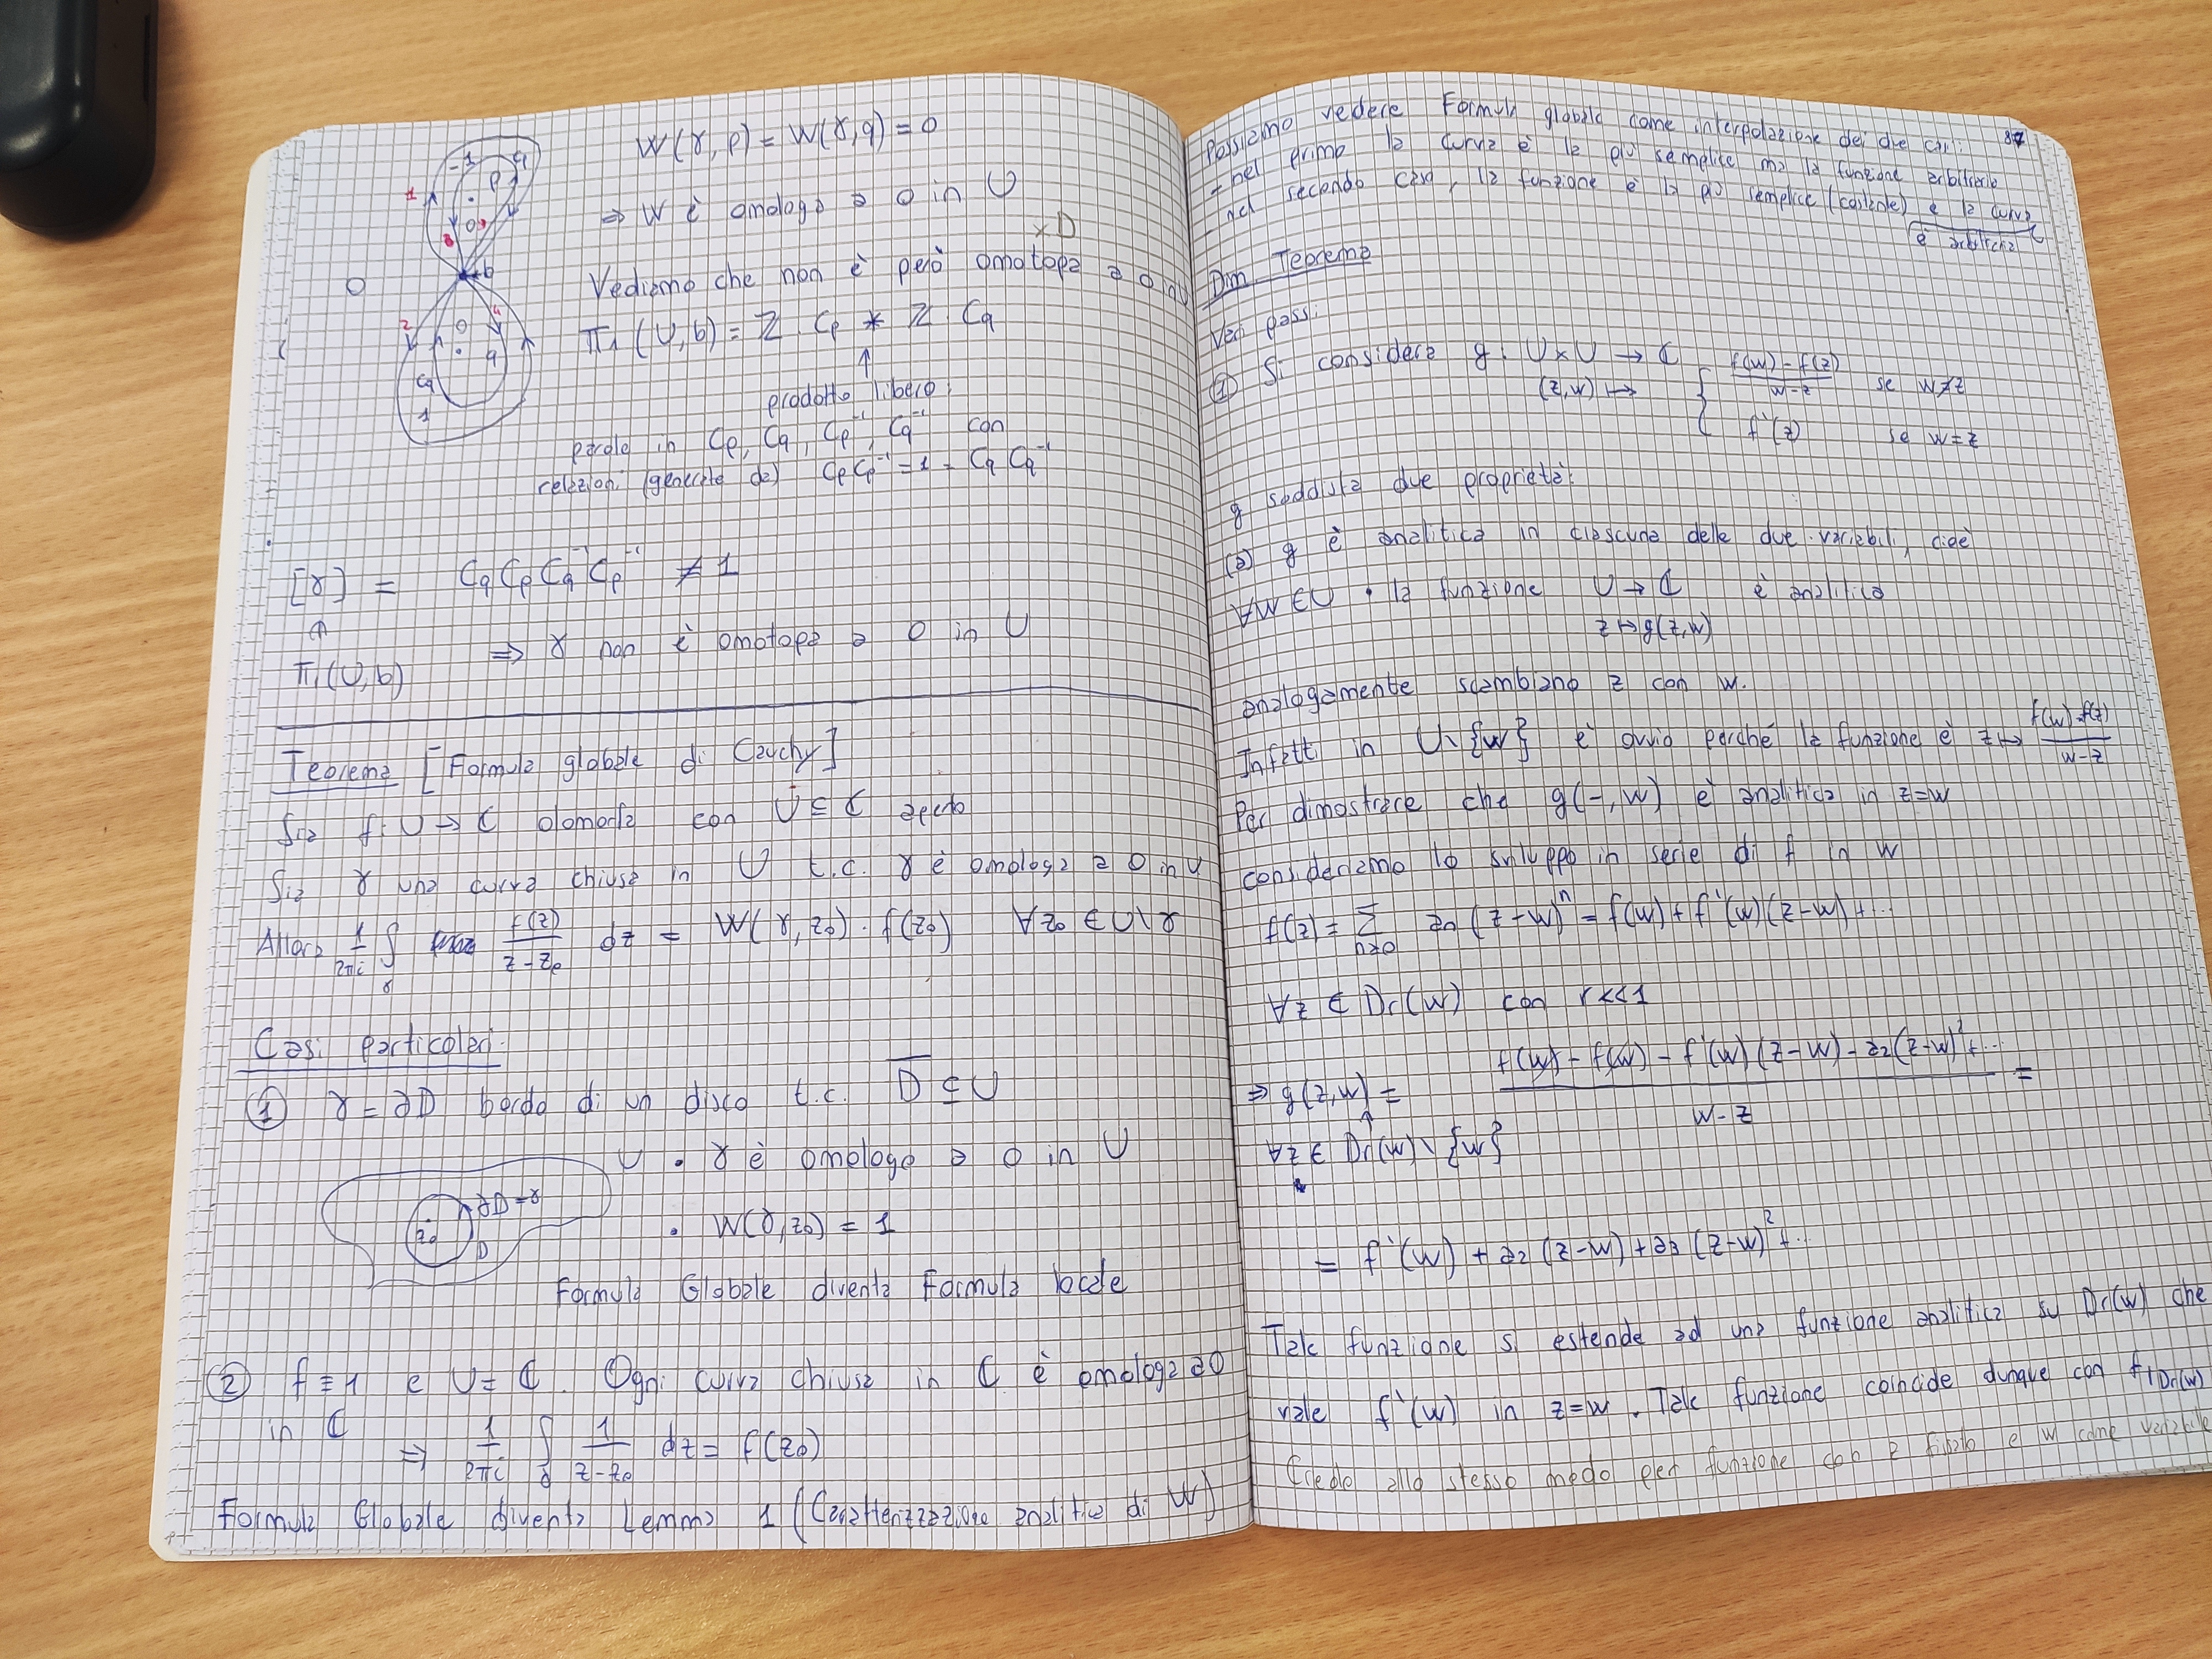 W(γ,p) = W(γ,q) = 0
⇒ W è omologo a 0 in U
×D
Vediamo che non è però omotopa a 0 in U
π₁(U,b) = ℤ Cp * ℤ Cq
↑
prodotto libero:
parole in Cp, Cq, Cp⁻¹, Cq⁻¹ con
relazioni (generate da) CpCp⁻¹ = 1 = CqCq⁻¹
[γ] = CqCpCq⁻¹Cp⁻¹ ≠ 1
π₁(U,b) ⇒ γ non è omotopa a 0 in U
Teorema [Formula globale di Cauchy]
Sia f: U → ℂ olomorfa con U ⊆ ℂ aperto
Sia γ una curva chiusa in U t.c. γ è omologa a 0 in U
Allora 1/2πi ∫γ f(z)/(z-z₀) dz = W(γ,z₀)·f(z₀) ∀z₀ ∈ U\γ
Casi particolari:
① γ = ∂D bordo di un disco t.c. D̅ ⊆ U
U • γ è omologo a 0 in U
∂D=γ
z₀
D
• W(γ,z₀) = 1
Formula Globale diventa Formula locale
② f ≡ 1 e U = ℂ. Ogni curva chiusa in ℂ è omologa a 0
in ℂ
⇒ 1/2πi ∫γ 1/(z-z₀) dz = f(z₀)
Formula Globale diventa Lemma 1 (Caratterizzazione analitica di W)
87
Possiamo vedere Formula globale come interpolazione dei due casi:
- nel primo la curva è la più semplice ma la funzione arbitraria
- nel secondo caso, la funzione è la più semplice (costante) e la curva
è arbitraria
Dim Teorema
Vari passi:
① Si considera g: U×U → ℂ
(z,w) ↦ { (f(w)-f(z))/(w-z) se w≠z
f'(z) se w=z
g soddisfa due proprietà:
(a) g è analitica in ciascuna delle due variabili, cioè
∀w∈U la funzione U → ℂ è analitica
z ↦ g(z,w)
analogamente scambiano z con w.
Infatti in U\{w} è ovvio perché la funzione è z ↦ (f(w)-f(z))/(w-z)
Per dimostrare che g(-,w) è analitica in z=w
consideriamo lo sviluppo in serie di f in w
f(z) = Σn≥0 an (z-w)ⁿ = f(w) + f'(w)(z-w) + ...
∀z ∈ Dr(w) con r<<1
⇒ g(z,w) = (f(w) - f(w) - f'(w)(z-w) - a₂(z-w)² + ...)/(w-z) =
↑
∀z ∈ Dr(w)\{w}
= f'(w) + a₂(z-w) + a₃(z-w)² + ..
Tale funzione si estende ad una funzione analitica su Dr(w) che
vale f'(w) in z=w. Tale funzione coincide dunque con f|Dr(w)
Credo allo stesso modo per funzione con z fissato e w come variabile